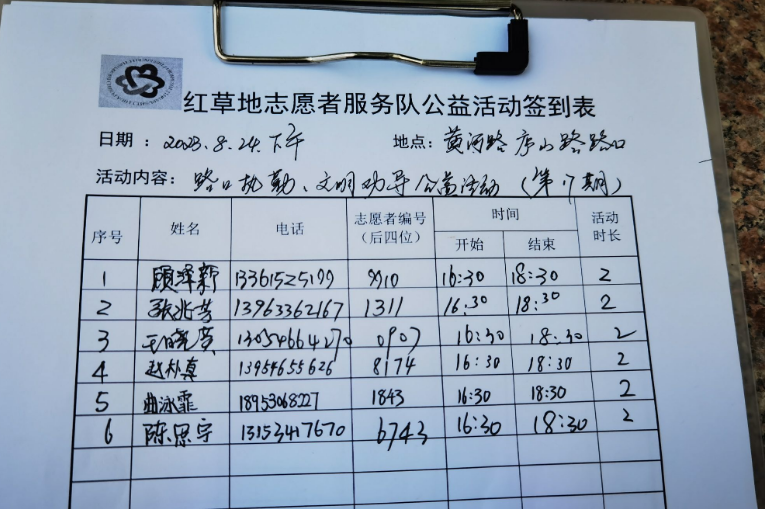 红草地志愿者服务队公益活动签到表
日期：2023.8.24.下午 地点：黄河路庐山路路口
活动内容：路口执勤、文明劝导公益活动（第17期）
序号 姓名 电话 志愿者编号（后四位） 时间 活动时长
开始 结束
1 顾泽新 13361525199 9910 16:30 18:30 2
2 张兆芳 13963362167 1311 16:30 18:30 2
3 王晓黄 13054664270 0907 16:30 18:30 2
4 赵朴真 13954655626 8174 16:30 18:30 2
5 曲泳霏 18953068227 1843 16:30 18:30 2
6 陈思宇 13153417670 6743 16:30 18:30 2